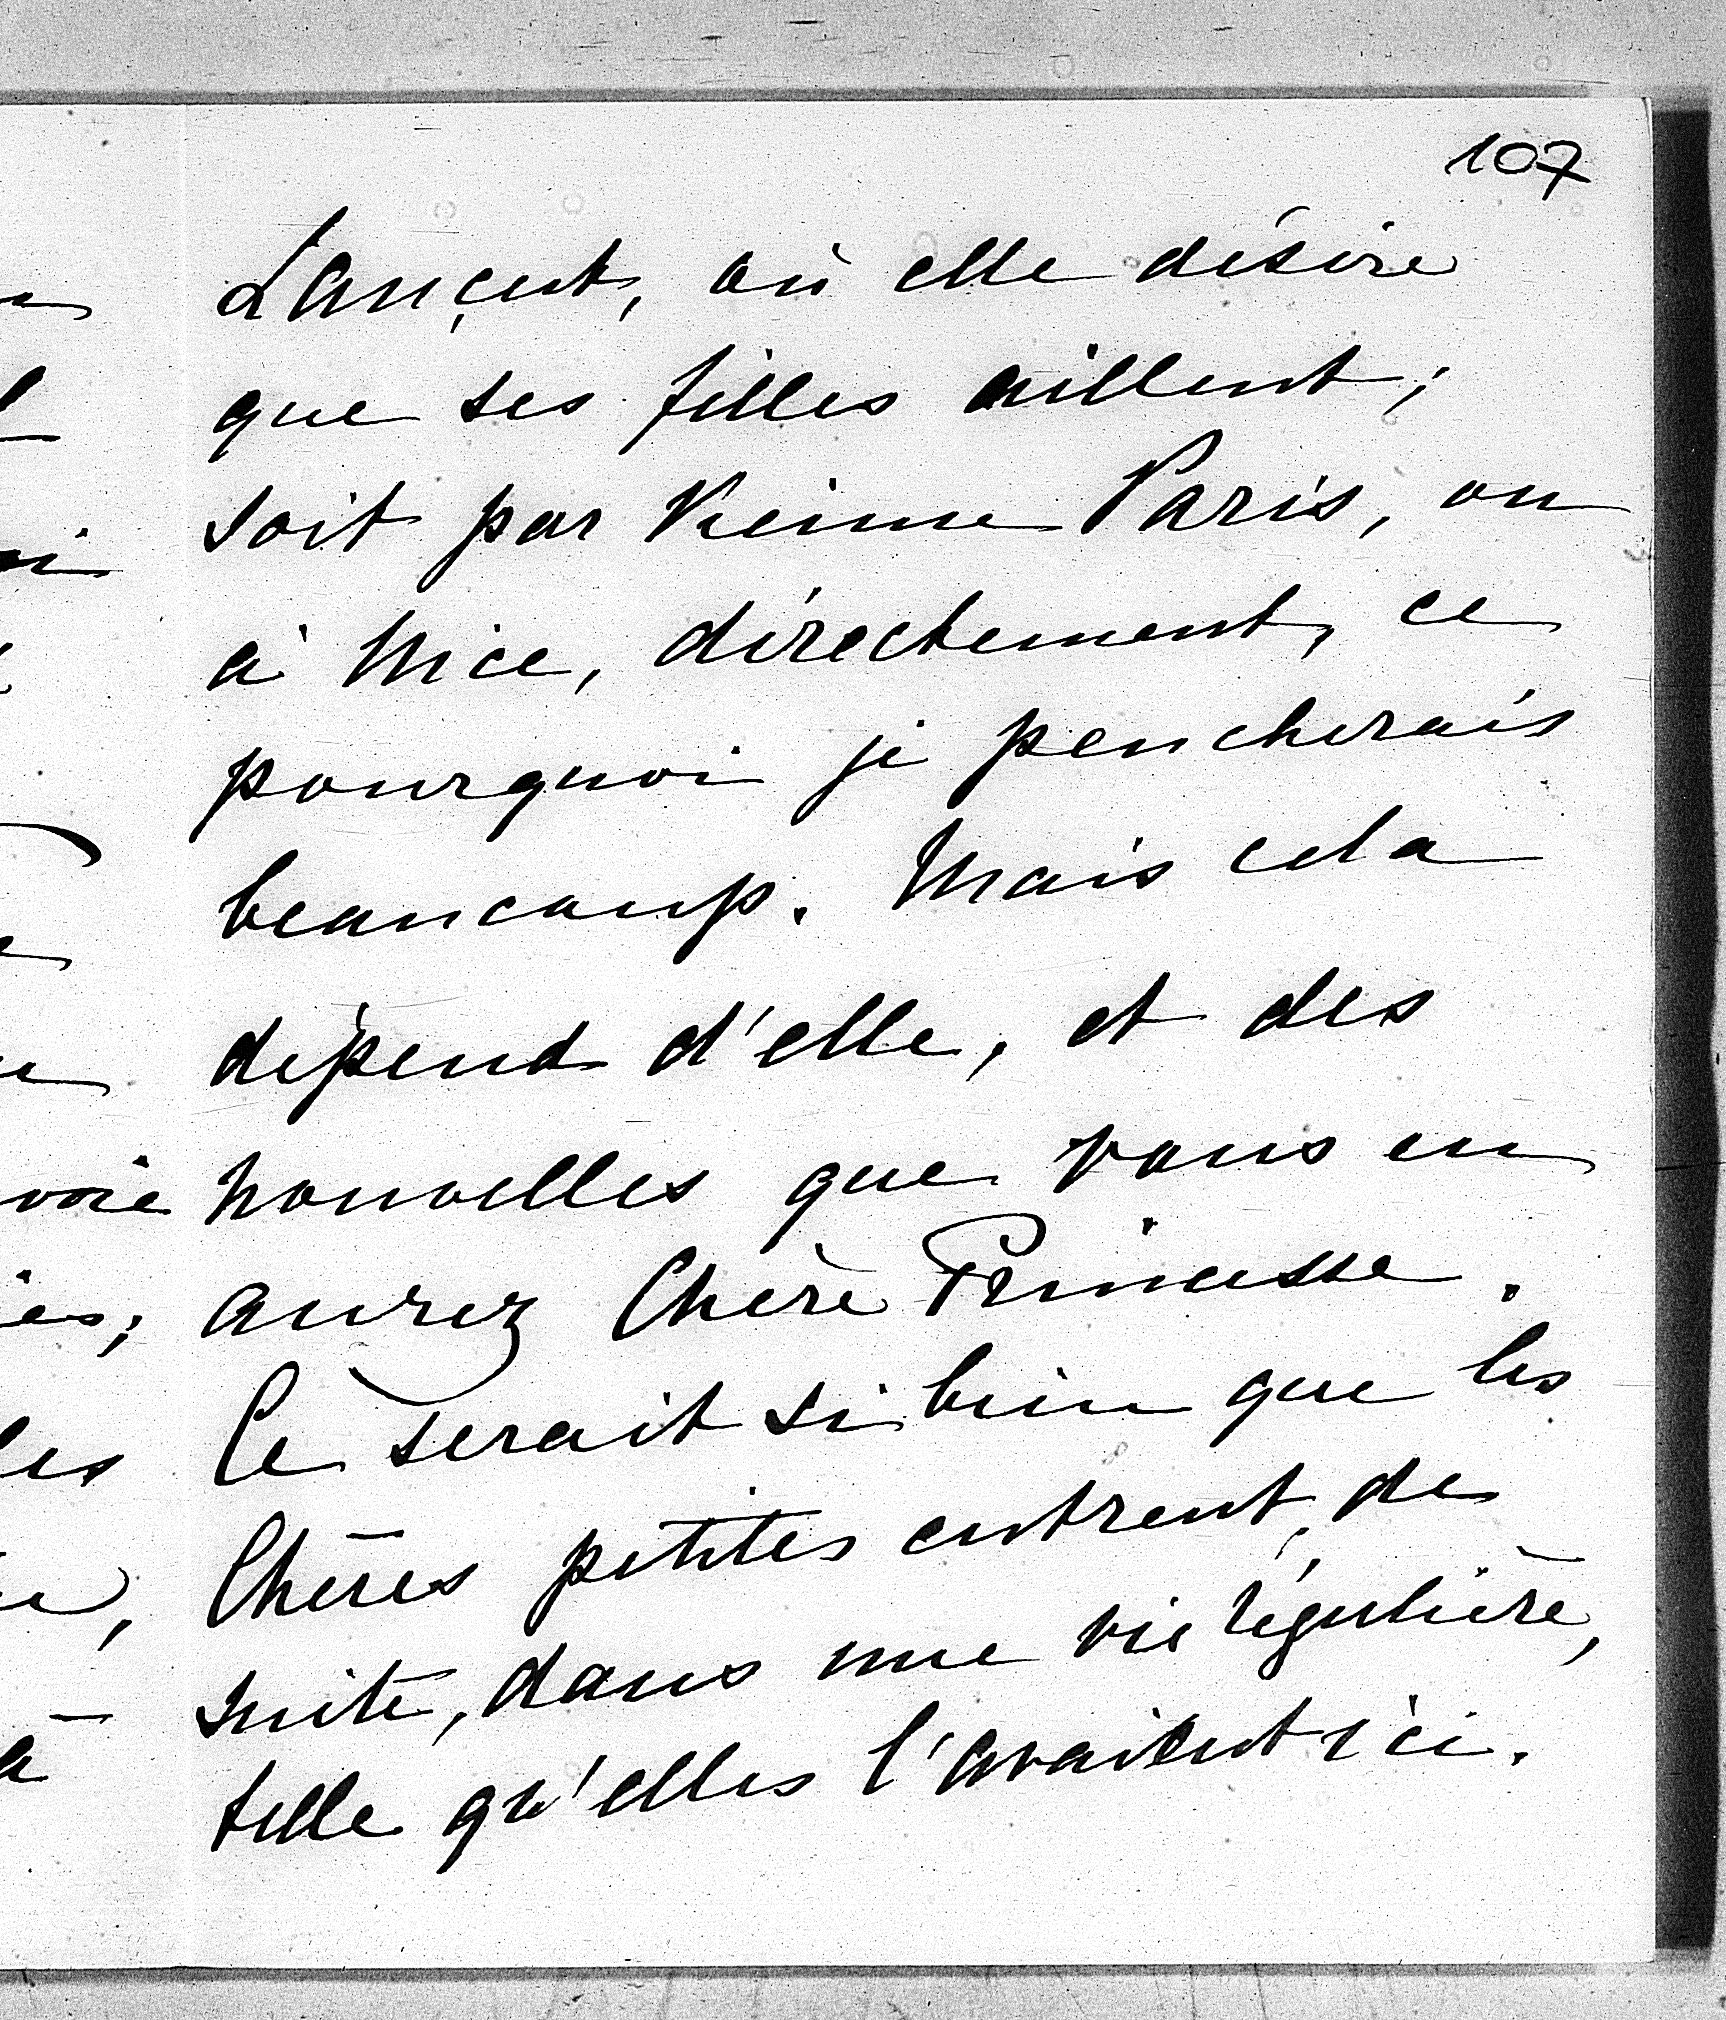 107
Lançut, où elle désire
que ses filles aillent;
soit par Vienne Paris, ou
à Nice, directement, ce
pourquoi je pencherais
beaucoup. Mais cela
dépend d'elle, et des
nouvelles que vous en
aurez Chère Princesse.
Ce serait si bien que les
Chères petites entrent, de
suite, dans une vie régulière,
telle qu'elles l'avaient ici.